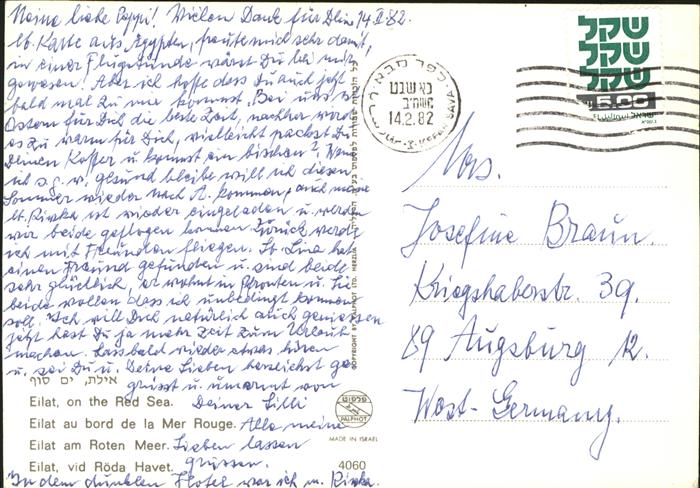 Meine liebe Peppi! Vielen Dank für Dein 14.II.82.
lb. Karte aus Ägypten, freute mich sehr damit,
in einer Flugstunde wärst Du bei mir
gewesen! Aber ich hoffe dass Du auch jetzt
bald mal zu mir kommst. Bei uns ist
Ostern für Dich die beste Zeit, nachher
es zu warm für Dich, vielleicht packst Du
Deinen Koffer u. kommst ein bischen? Wenn
ich s.g.w. gesund bleibe will ich diesen
Sommer wieder nach A. kommen, auch meine
lb. Rivka ist wieder eingeladen u. werden
wir beide geflogen kommen. Zurück werde
ich mit Freunden fliegen. Lb. Lina hat
einen Freund gefunden u. sind beide
sehr glücklich, er wohnt in u. Sie
beide wollen dass ich unbedingt kommen
soll. Ich will Dich natürlich auch geniessen
jetzt hast Du ja mehr Zeit zum Urlaub
machen. Lass bald wieder etwas hören
u. sei Du u. Deine Lieben herzlichst ge-
grüsst u. umarmt von
Deiner Lilli
Alle meine
Lieben lassen
grüssen.
In dem dunklen Hotel war ich m. Rivka.
אילת, ים סוף
Eilat, on the Red Sea.
Eilat au bord de la Mer Rouge.
Eilat am Roten Meer.
Eilat, vid Röda Havet.
4060
פלפוט
PALPHOT
MADE IN ISRAEL
COPYRIGHT BY PALPHOT LTD. HERZLIA
שקל
שקל
שקל
5.00
ישראל
כפר סבא
כא שבט
תשמ"ב
14.2.82
KEFAR SAVA
Mrs.
Josefine Braun.
Kriegshaberstr. 39.
89 Augsburg 12.
West-Germany.